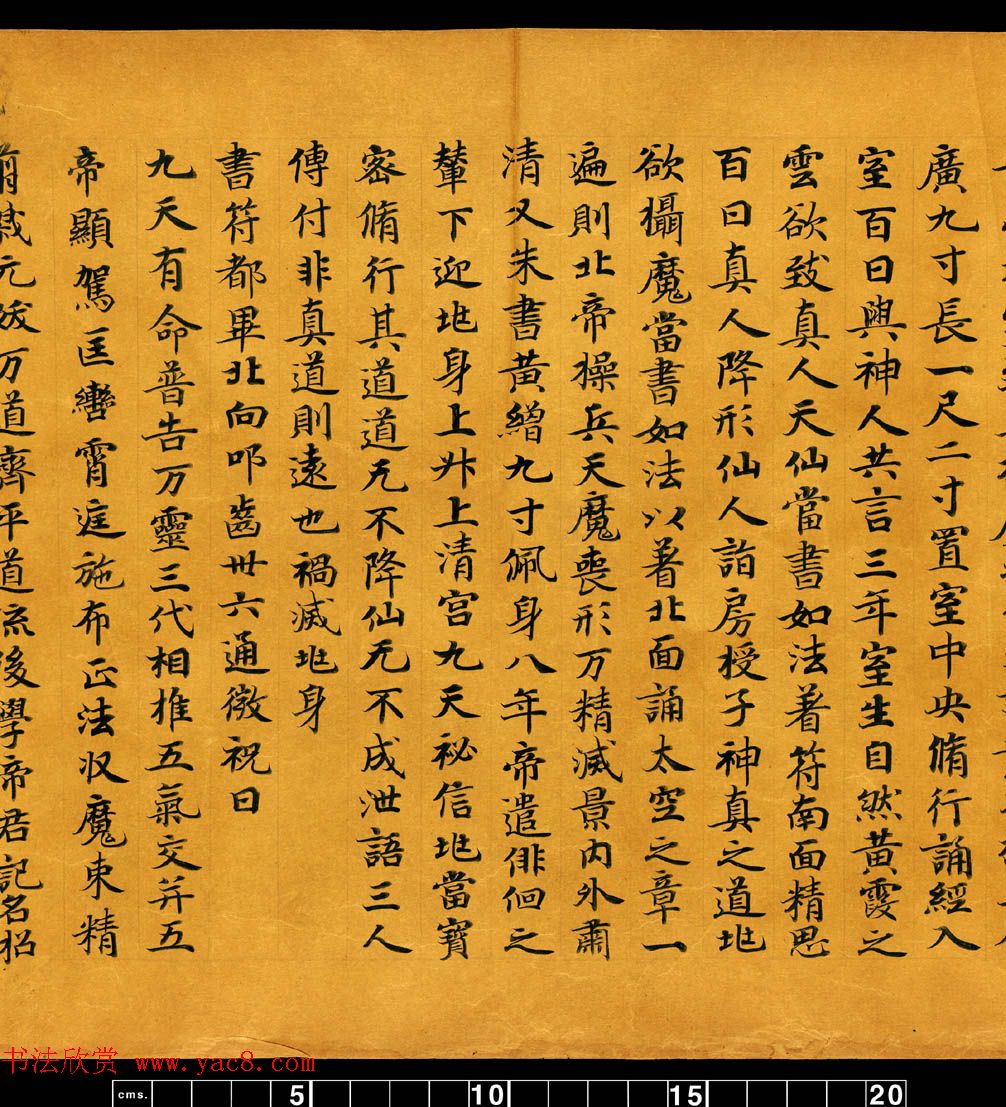 廣九寸長一尺二寸置室中央脩行誦經入
室百日與神人共言三年室生自然黃霞之
雲欲致真人天仙當書如法著符南面精思
百日真人降形仙人詣房授子神真之道兆
欲攝魔當書如法以著北面誦太空之章一
遍則北帝操兵天魔喪形万精滅景內外肅
清又朱書黃繒九寸佩身八年帝遣俳佪之
輦下迎兆身上升上清宮九天祕信兆當寶
密脩行其道道无不降仙无不成泄語三人
傳付非真道則遠也禍滅兆身
書符都畢北向叩齒卅六通微祝曰
九天有命普告万靈三代相推五氣交并五
帝顯駕匡轡霄庭施布正法收魔束精
元万道齊平道流後學帝君記名招
书法欣赏 www.yac8.com
cms. 5 10 15 20